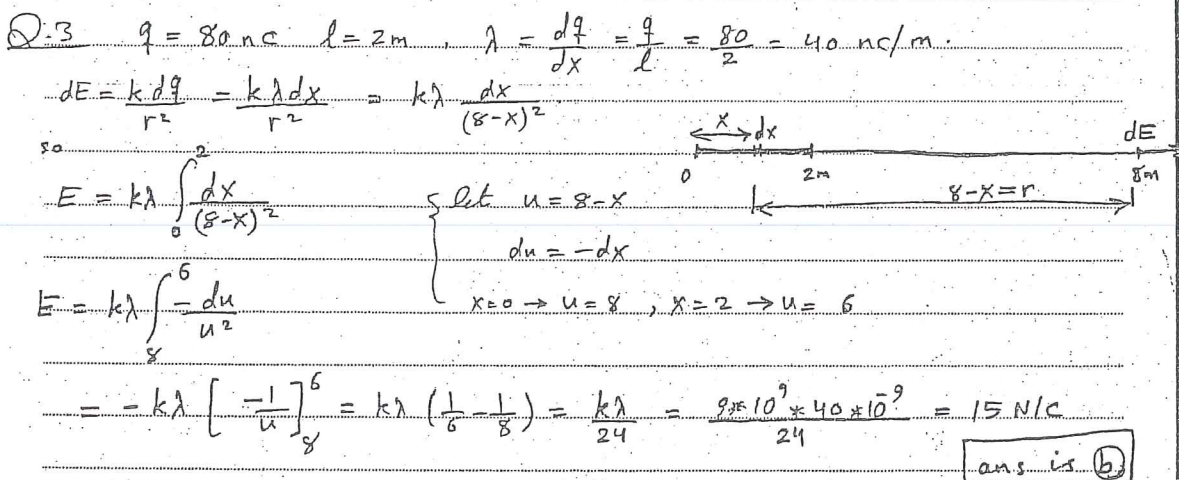 Q.3 q = 80 nc l = 2m , λ = dq/dx = q/l = 80/2 = 40 nc/m .
dE = k dq/r² = k λ dx/r² = kλ dx/(8-x)²
x dx dE
so
0 2m 8m
E = kλ ∫₀² dx/(8-x)² { let u = 8-x 8-x=r
du = -dx
E = kλ ∫₈⁶ -du/u² x=0 → u = 8 , x = 2 → u = 6
= -kλ [-1/u]₈⁶ = kλ (1/6 - 1/8) = kλ/24 = 9*10⁹ * 40 *10⁻⁹/24 = 15 N/C
ans is b